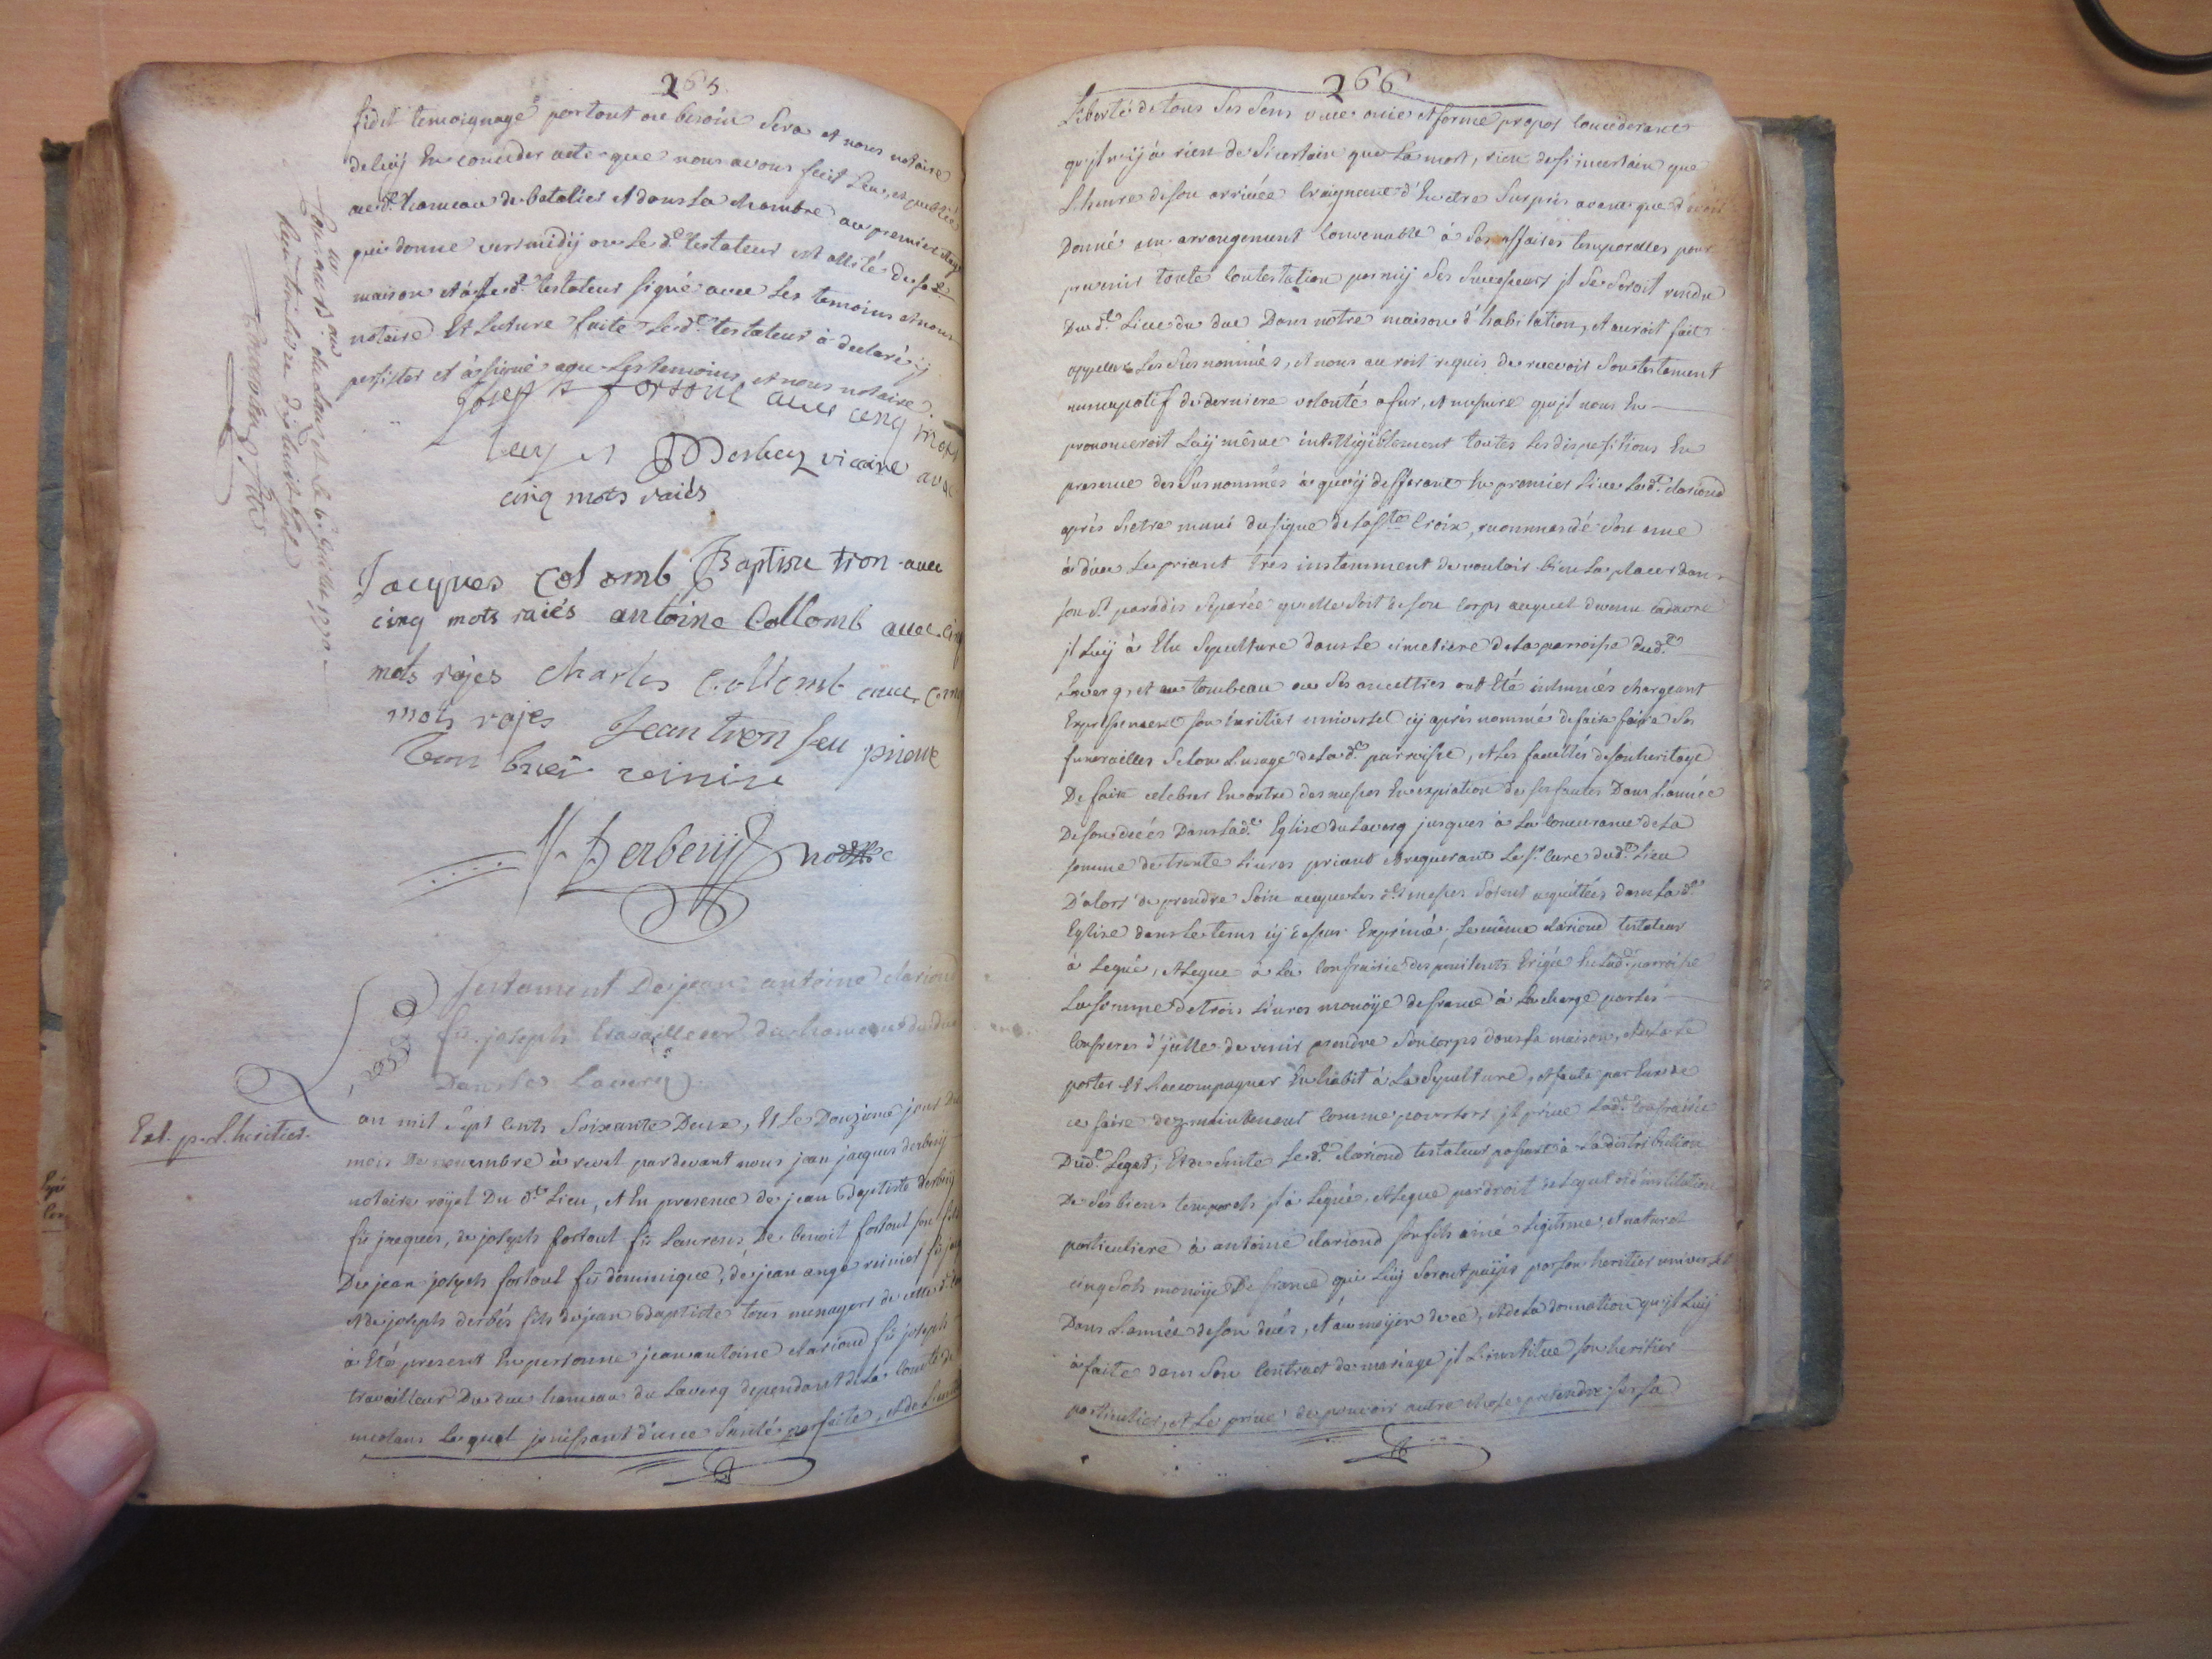 265
fidel temoignage partout ou besoin sera et nous notaire
de luÿ en conceder acte que nous avons fait leu, et publié
au d.t hameau de bataliés et dans la chambre au premier étage
qui donne vers midÿ ou le d.t testateur est allité de sa d.te
maison et à le d.t testateur signé avec les temoins et nous
notaire Et lecture faite le d.t testateur à declaré ÿ
persister et à signé avec les temoins et nous notaire.
Joseph fortoul avec cinq mots
Derbez vicaire avec
cinq mots raiés
Jacques Colomb Baptiste tron avec
cinq mots raiés antoine Collomb avec cinq
mots rajes Charles Collomb avec cinq
mots rajes Jean tron feu pierre
J. J. Derbenÿ notre
Testament De jean antoine clariond
fû joseph travailleur du hameau du duc
Dans le Laverq
Ext. p.r L'heritier.
an mil sept cents soixante Deux, Et le Douzieme jour Du
mois De novembre à revel pardevant nous jean jacques derbenÿ
notaire roÿal Du d.t Lieu, et En presence de jean Baptiste derbenÿ
fû jacques, de joseph fortoul fû Laurens, De benoit fortoul son fils
De jean joseph fortoul fû dominique, de jean ange reinier fû
et de joseph derbés fils de jean Baptiste tous menagers de cette
à Eté present En personne jean antoine clariond fû joseph
travailleur Du duc hameau du Laverq dependant de la comté de
meolans lequel jouissant d'une santé parfaite, et de l'entiere
266
Liberté de tous ses sens vue ouie et ferme propos considerant
qu'jl n'ÿ à rien de si certain que la mort, rien de si incertain que
L'heure de son arrivée craignant d'En etre surpris avant que d'avoir
Donné un arrangement convenable à ses affaires temporelles pour
prevenir toute contestation parmÿ ses successeurs jl se seroit rendu
Du d.t Lieu du duc Dans notre maison d'habitation, et auroit fait
appeller les susnommés, et nous auroit requis de recevoir son testament
nuncupatif de derniere volonté a fur, et mesure qu'jl nous En
prononceroit Luÿ même intelligiblement toutes les dispositions En
presence des susnommés à quoÿ defferant En premier Lieu Led.t clariond
après s'etre muni du signe de la S.te Croix, recommandé son ame
à dieu le priant très instamment de vouloir bien la placer dans
son S.t paradis separée qu'elle soit de son corps auquel devenu cadavre
jl Luÿ à Elu sepulture dans le cimetiere de la parroisse dud.t
Laverq, et au tombeau ou ses ancettres ont Eté inhumés chargeant
Expressement son heritier universel cÿ après nommé de faire faire ses
funerailles selon L'usage de lad.te parroisse, et les facultés de son heritage
De faire celebrer En outre des messes En expiation de ses fautes Dans L'année
De son decés Dans lad.te Eglise du Laverq jusques à la concurance de la
somme de trente Livres priant et requerant le S.r curé dud.t Lieu
D'alors de prendre soin a ce que les d.tes messes soient acquittées dans lad.te
Eglise dans le tems cÿ dessus Exprimé; Le même clariond testateur
à Legué, et Legue à la confrairie des penitents Erigée En lad.te parroise
La somme de trois Livres monoÿe de france à la charge par les
confreres d'jcelle de venir prendre son corps dans sa maison, et de la le
porter et L'accompagner En habit à la sepulture, et faute par Eux de
ce faire dez maintenant comme pour lors jl prive lad.te confrairie
Dud.t Leget; Et de suite le d.t clariond testateur passant à la distribution
De ses biens temporels jl à Legué, et Legue par droit de Legat et d'institution
particuliere à antoine clariond son fils ainé Legitime, et naturel
cinq sols monoÿe De france qui Luÿ seront paÿés par son heritier universel
Dans L'année de son decés, et au moÿen de ce, et de la donnation qu'jl Luÿ
à faite dans son contract de mariage jl L'institue son heritier
particulier, et le prive de pouvoir autre chose pretendre sur sa